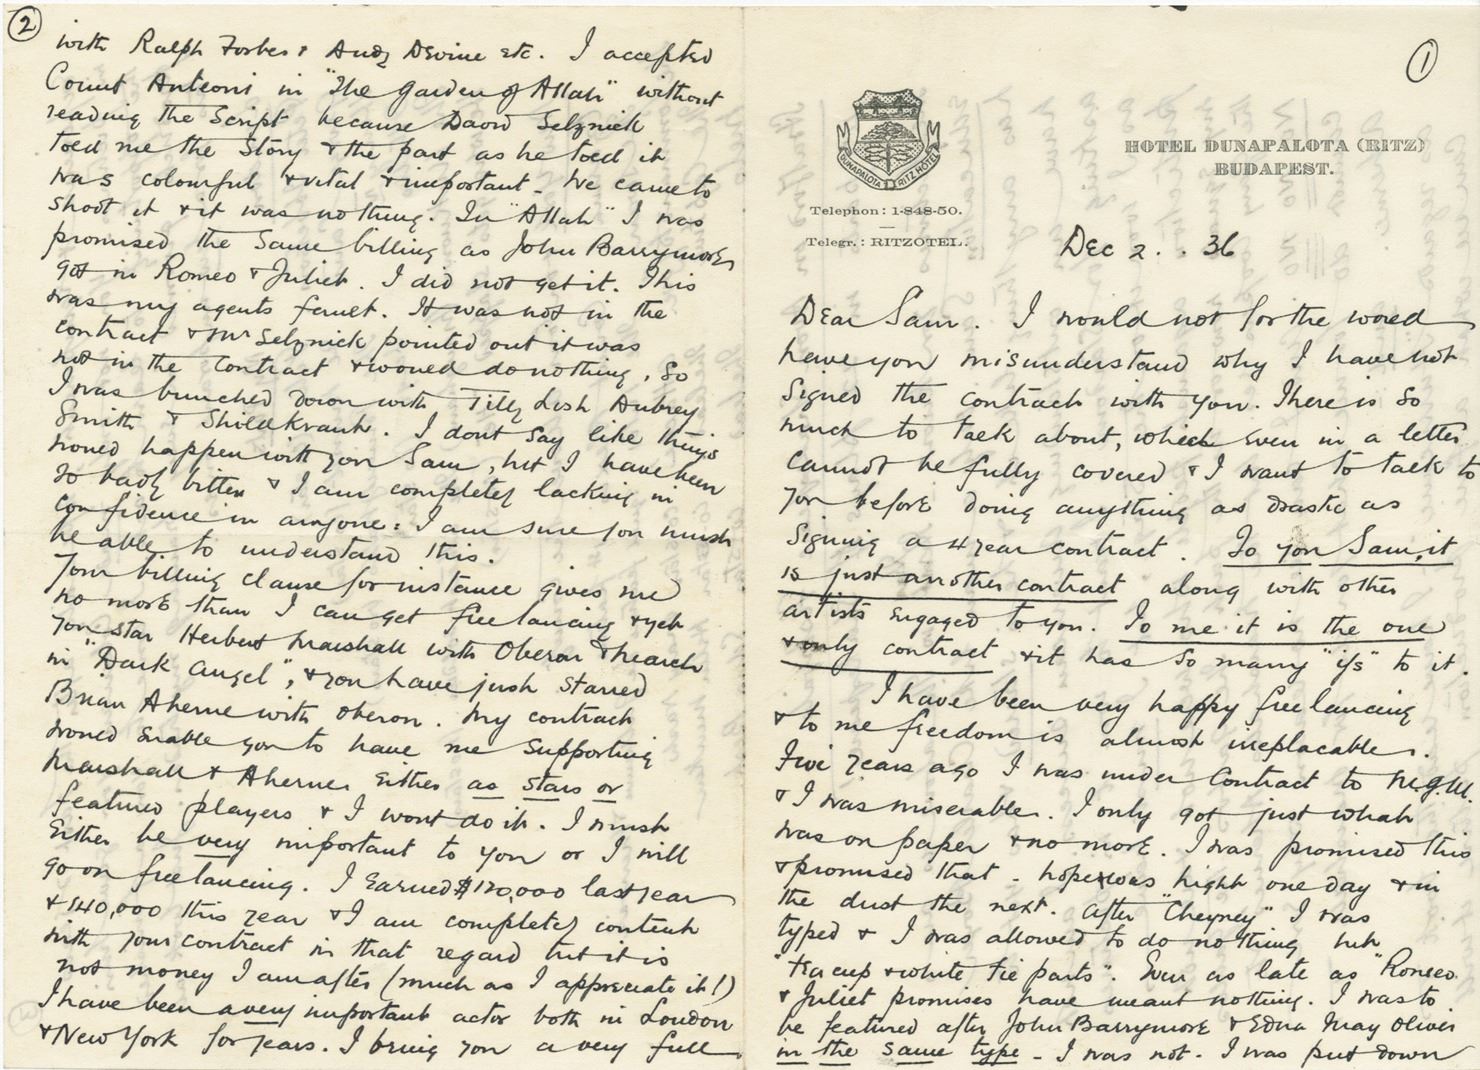 ①
DUNAPALOTA RITZ HOTEL
HOTEL DUNAPALOTA (RITZ)
BUDAPEST.
Telephon: 1-848-50.
Telegr.: RITZOTEL.
Dec 2. . 36
Dear Sam. I would not for the world
have you misunderstand why I have not
signed the contract with you. There is so
much to talk about, which even in a letter
cannot be fully covered & I want to talk to
you before doing anything as drastic as
signing a 4 year contract. To you Sam, it
is just another contract along with other
artists engaged to you. To me it is the one
& only contract & it has so many "ifs" to it.
I have been very happy free lancing
& to me freedom is almost ireplacable.
Five years ago I was under contract to M.G.M.
& I was miserable. I only got just what
was on paper & no more. I was promised this
& promised that - hope was hight one day & in
the dust the next. After "Cheyney" I was
typed & I was allowed to do nothing but
"tea cup & white tie parts". Even as late as "Romeo
& Juliet promises have meant nothing. I was to
be featured after John Barrymore & Edna May Oliver
in the same type - I was not. I was put down
②
with Ralph Forbes & Andy Devine etc. I accepted
Count Anteoni in "The Garden of Allah" without
reading the script because David Selznick
told me the story & the part as he told it
was colourful & vital & important - We came to
shoot it & it was nothing. In "Allah" I was
promised the same billing as John Barrymore
got in Romeo & Juliet. I did not get it. This
was my agents fault. It was not in the
contract & Mr Selznick pointed out it was
not in the contract & would do nothing. So
I was bunched down with Tilly Losh Aubrey
Smith & Shildkraut. I dont say like things
would happen with you Sam, but I have been
so badly bitten & I am completely lacking in
confidence in anyone: I am sure you must
be able to understand this.
Your billing clause for instance gives me
no more than I can get free lancing & yet
you star Herbert Marshall with Oberon & March
in "Dark Angel", & you have just starred
Brian Aherne with Oberon. My contract
would enable you to have me supporting
Marshall & Aherne either as stars or
featured players & I wont do it. I must
either be very important to you or I will
go on freelancing. I earned $120,000 last year
& 140,000 this year & I am completely content
with your contract in that regard but it is
not money I am after (much as I appreciate it!)
I have been a very important actor both in London
& New York for years. I bring you a very full